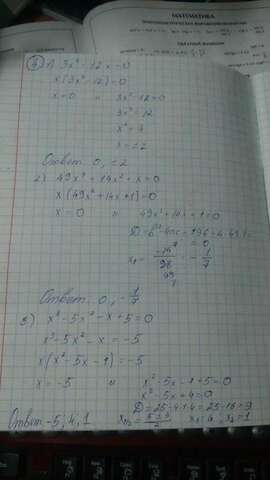 МАТЕМАТИКА
4) 1) 3x³-12x=0
x(3x²-12)=0
x=0 и 3x²-12=0
3x²=12
x²=4
x=±2
Ответ: 0, ±2
2) 49x³+14x²+x=0
x(49x²+14x+1)=0
x=0 и 49x²+14x+1=0
D=b²-4ac=196-4·49·1=
=0
x₁= -14/98 = -1/7
Ответ: 0, -1/7
3) x³-5x²-x+5=0
x³-5x²-x=-5
x(x²-5x-1)=-5
x=-5 и x²-5x-1+5=0
x²-5x+4=0
D=25-4·1·4=25-16=9
Ответ -5, 4, 1 x₁,₂=5±3/2 x₁=4, x₂=1